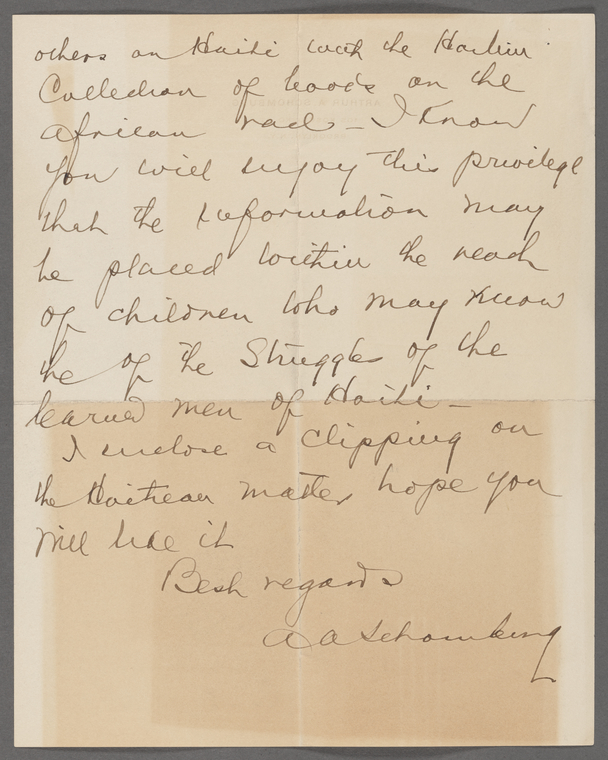 others on Haiti with the Harlem
Collection of books on the
african race – I know
you will enjoy this privilege
that the information may
be placed within the reach
of children who may know
the of the Struggles of the
learned men of Haiti –
I enclose a clipping on
the Haitian matter hope you
will like it
Best regards
A A Schomburg